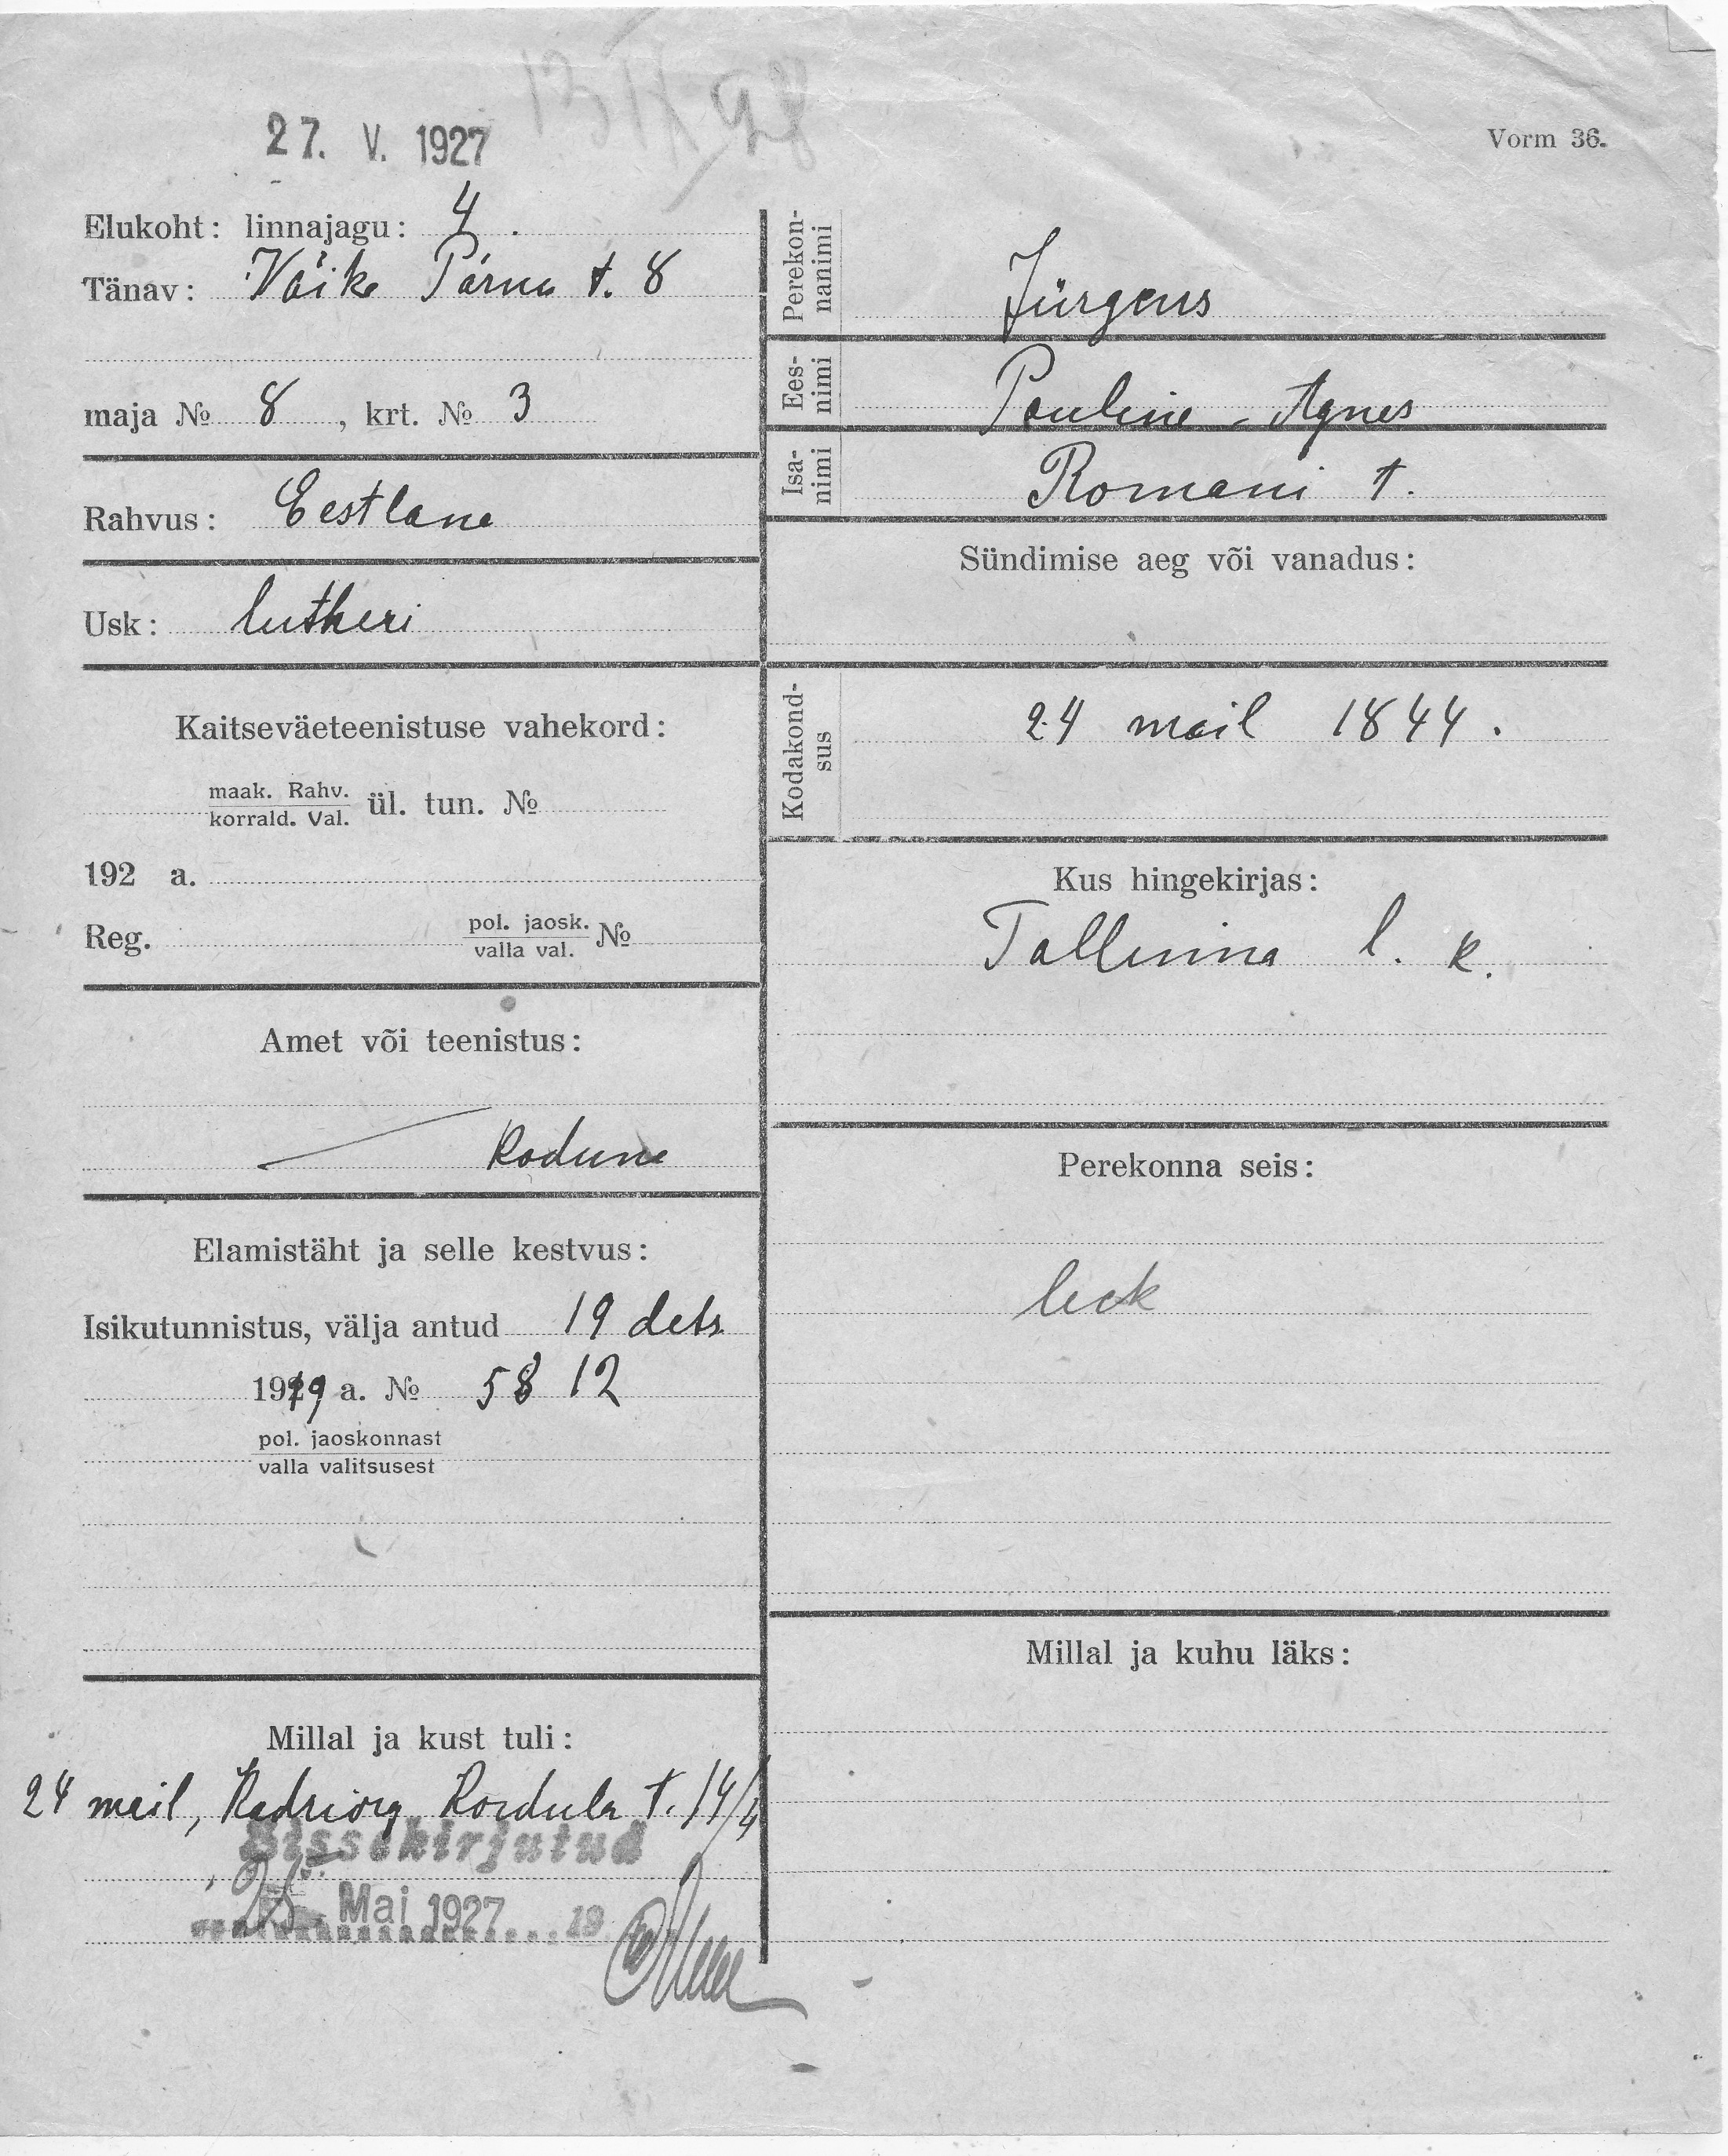 27. V. 1927
Vorm 36.
Elukoht: linnajagu: 4.
Tänav: Väike Pärna t. 8
maja № 8, krt. № 3
Rahvus: Eestlane
Usk: lutheri
Kaitseväeteenistuse vahekord:
maak. Rahv.
korrald. Val. ül. tun. №
192 a.
Reg. pol. jaosk.
valla val. №
Amet või teenistus:
Kodune
Elamistäht ja selle kestvus:
Isikutunnistus, välja antud 19 dets.
1919 a. № 5812
pol. jaoskonnast
valla valitsusest
Millal ja kust tuli:
24 mail, Kadriorg, t. 14/4
Sissekirjutud
25. Mai 1927 19
Perekonnanimi
Jürgens
Eesnimi
Pauline-Agnes
Isanimi
Romani t.
Sündimise aeg või vanadus:
Kodakondsus
24 mail 1844.
Kus hingekirjas:
Tallinna l. k.
Perekonna seis:
lesk
Millal ja kuhu läks: